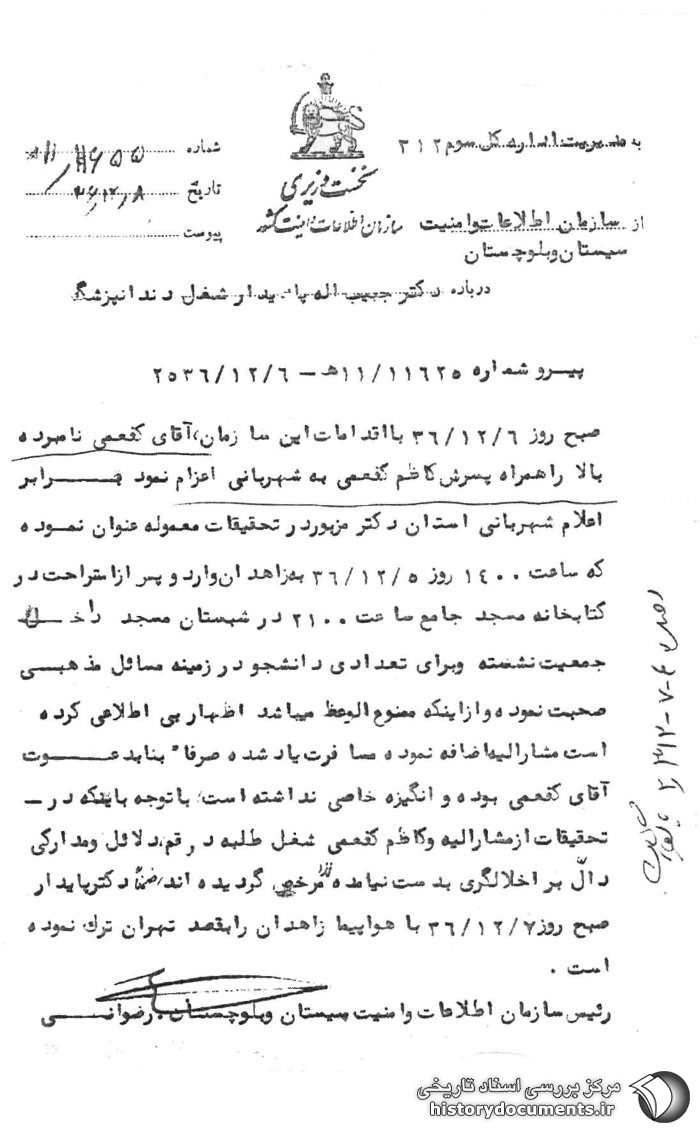 به مدیریت اداره کل سوم ۳۱۲
شماره
۱۱۶۵۵
تاریخ
پیوست
نخست وزیری
سازمان اطلاعات و امنیت کشور
از سازمان اطلاعات و امنیت
سیستان و بلوچستان
درباره دکتر حبیب اله پایدار شغل دندانپزشک
پیرو شماره ۱۱/۱۱۶۲۵ﻫ - ۲۵۳۶/۱۲/۶
صبح روز ۳۶/۱۲/۶ با اقدامات این سازمان، آقای کفعمی نامبرده
بالا را همراه پسرش کاظم کفعمی به شهربانی اعزام نمود برابر
اعلام شهربانی استان دکتر مزبور در تحقیقات معموله عنوان نموده
که ساعت ۱۴۰۰ روز ۳۶/۱۲/۵ به زاهدان وارد و پس از استراحت در
کتابخانه مسجد جامع ساعت ۲۱۰۰ در شبستان مسجد داخل
جمعیت نشسته وبرای تعدادی دانشجو در زمینه مسائل مذهبی
صحبت نموده و از اینکه ممنوع الوعظ میباشد اظهار بی اطلاعی کرده
است مشارالیه اضافه نموده مسافرت یاد شده صرفا" بنا بدعوت
آقای کفعمی بوده و انگیزه خاصی نداشته است، با توجه باینکه در -
تحقیقات از مشارالیه و کاظم کفعمی شغل طلبه در قم، دلائل ومدارکی
دالّ بر اخلالگری بدست نیامده مرخص گردیده اند، ضمناً دکتر پایدار
صبح روز ۳۶/۱۲/۷ با هواپیما زاهدان را بقصد تهران ترک نموده
است .
رئیس سازمان اطلاعات و امنیت سیستان و بلوچستان. رضوانی
مرکز بررسی اسناد تاریخی
historydocuments.ir